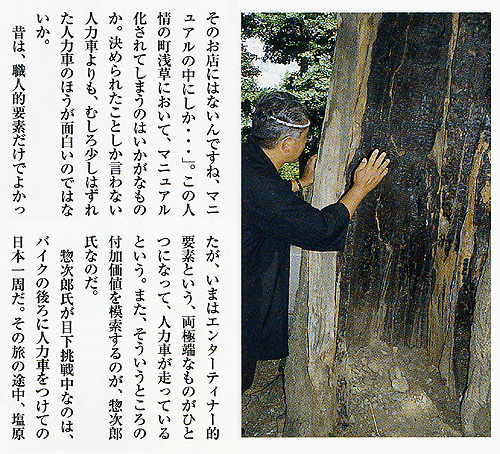 そのお店にはないんですね、マニ
ュアルの中にしか・・・』。この人
情の町浅草において、マニュアル
化されてしまうのはいかがなもの
か。決められたことしか言わない
人力車よりも、むしろ少しはずれ
た人力車のほうが面白いのではな
いか。
昔は、職人的要素だけでよかっ
たが、いまはエンターティナー的
要素という、両極端なものがひと
つになって、人力車が走っている
という。また、そういうところの
付加価値を模索するのが、惣次郎
氏なのだ。
惣次郎氏が目下挑戦中なのは、
バイクの後ろに人力車をつけての
日本一周だ。その旅の途中、塩原